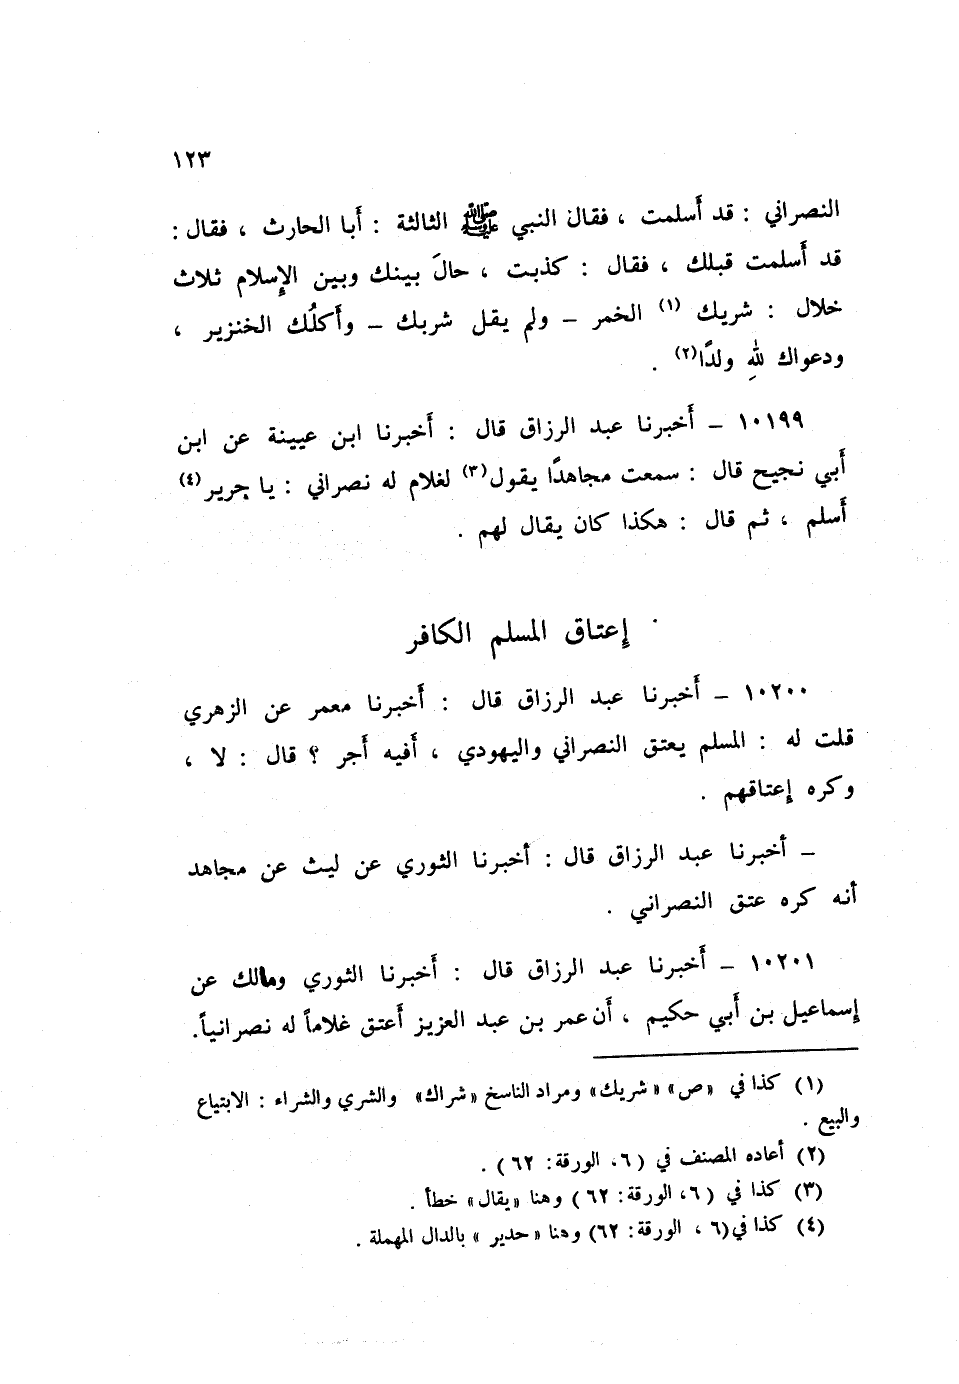 ١٢٣
النصراني : قد أسلمت ، فقال النبي ﷺ الثالثة : أبا الحارث ، فقال :
قد أسلمت قبلك ، فقال : كذبت ، حالَ بينك وبين الإسلام ثلاث
خلال : شريك (١) الخمر – ولم يقل شربك – وأكلُك الخنزير ،
ودعواك للهِ ولدًا(٢) .
١٠١٩٩ – أخبرنا عبد الرزاق قال : أخبرنا ابن عيينة عن ابن
أبي نجيح قال : سمعت مجاهدًا يقول(٣) لغلام له نصراني : يا جرير(٤)
أسلم ، ثم قال : هكذا كان يقال لهم .
إعتاق المسلم الكافر
١٠٢٠٠ – أخبرنا عبد الرزاق قال : أخبرنا معمر عن الزهري
قلت له : المسلم يعتق النصراني واليهودي ، أفيه أجر ؟ قال : لا ،
وكره إعتاقهم .
– أخبرنا عبد الرزاق قال : أخبرنا الثوري عن ليث عن مجاهد
أنه كره عتق النصراني .
١٠٢٠١ – أخبرنا عبد الرزاق قال : أخبرنا الثوري ومالك عن
إسماعيل بن أبي حكيم ، أن عمر بن عبد العزيز أعتق غلاماً له نصرانياً.
(١) كذا في «ص» «شريك» ومراد الناسخ «شراك» والشري والشراء : الابتياع
والبيع .
(٢) أعاده المصنف في (٦، الورقة: ٦٢) .
(٣) كذا في (٦، الورقة: ٦٢) وهنا «يقال» خطأ .
(٤) كذا في(٦ ، الورقة: ٦٢) وهنا «حدير» بالدال المهملة .